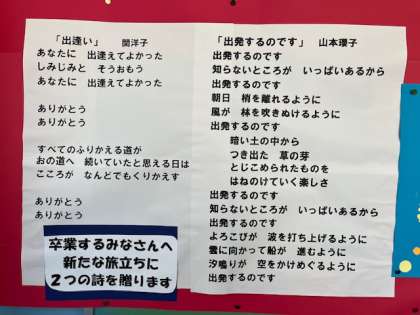 「出逢い」 関洋子
あなたに 出逢えてよかった
しみじみと そうおもう
あなたに 出逢えてよかった
ありがとう
ありがとう
すべてのふりかえる道が
おの道へ 続いていたと思える日は
こころが なんとでもくりかえす
ありがとう
ありがとう
卒業するみなさんへ
新たな旅立ちに
2つの詩を贈ります
「出発するのです」 山本瓔子
出発するのです
知らないところが いっぱいあるから
出発するのです
朝日 梢を離れるように
風が 林を吹きぬけるように
出発するのです
暗い土の中から
つき出た 草の芽
とじこめられたものを
はねのけていく楽しさ
出発するのです
知らないところが いっぱいあるから
出発するのです
よろこびが 波を打ち上げるように
雲に向かって船が 進むように
汐鳴りが 空をかけめぐるように
出発するのです